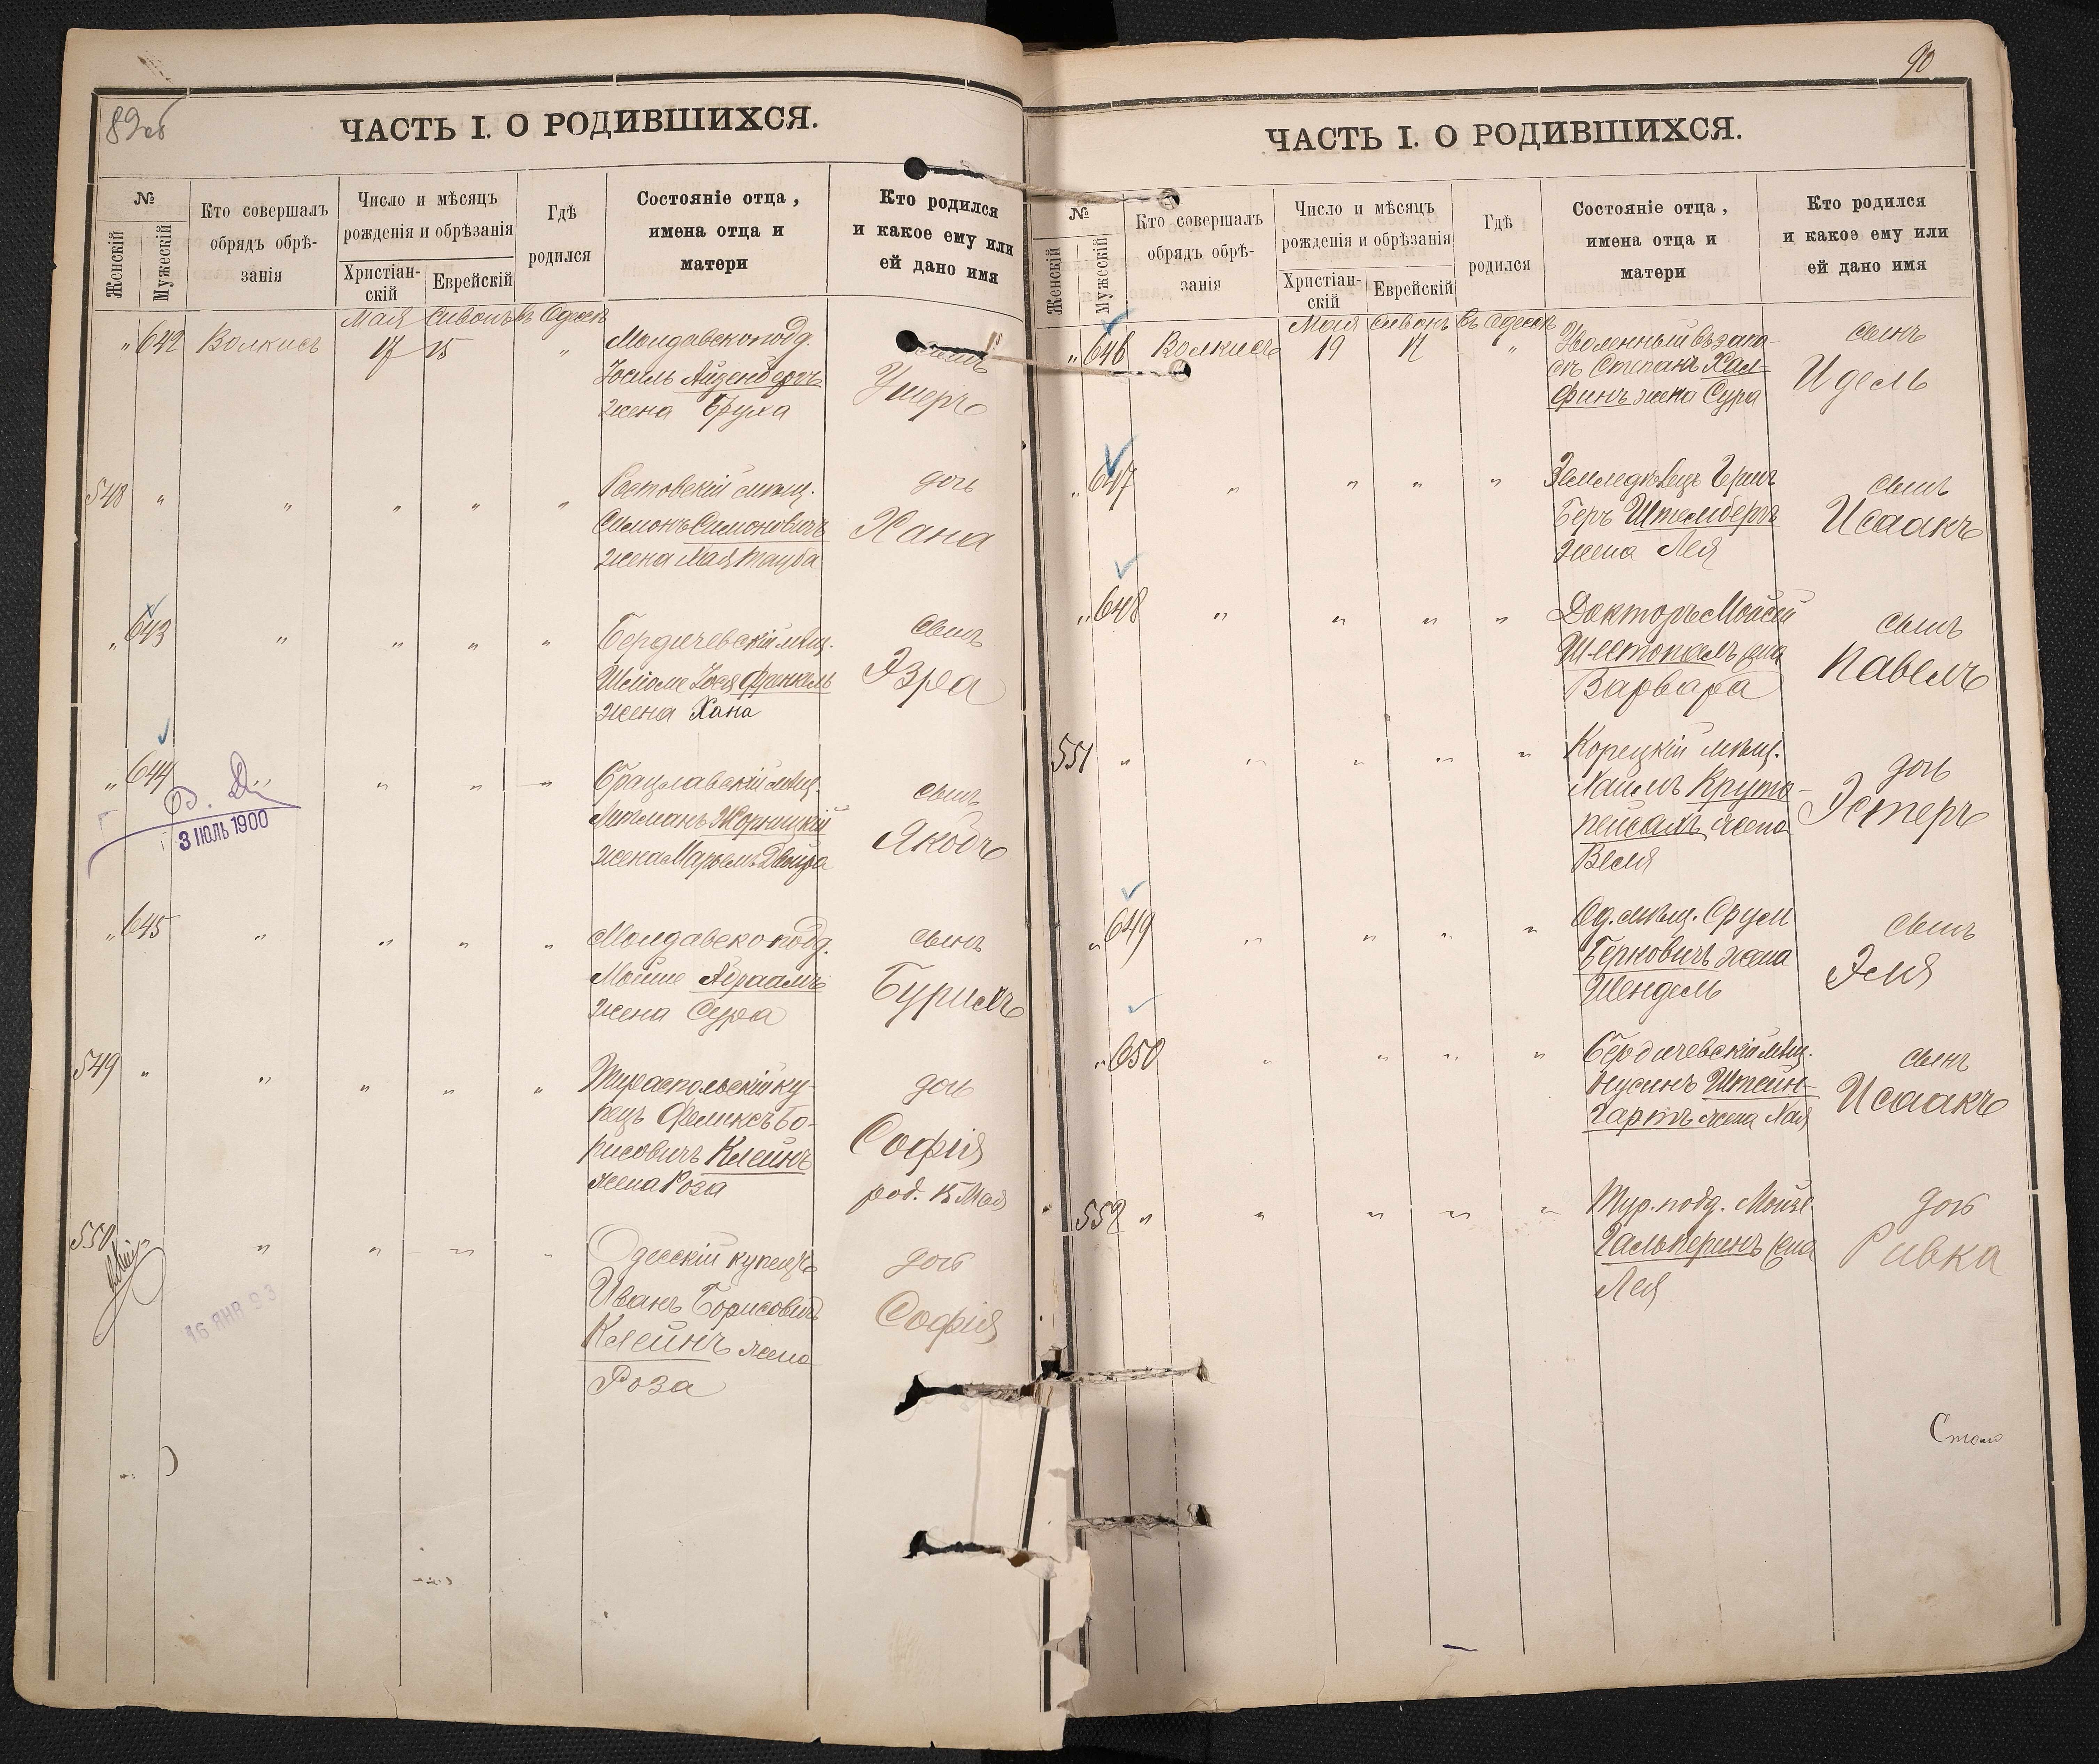 89об
ЧАСТЬ I. О РОДИВШИХСЯ.
№
Женскій
Мужескій
Кто совершалъ
обрядъ обрѣ-
занія
Число и мѣсяцъ
рожденія и обрѣзанія
Христіан-
скій
Еврейскій
Гдѣ
родился
Состояніе отца,
имена отца и
матери
Кто родился
и какое ему или
ей дано имя
Мая Сивонъ въ Одессѣ
" 642 Волкисъ 17 15 " Молдавскоподд.
Іосиль Айзенбергъ
жена Бруха
сынъ
Ушеръ
548 " " " " " Ростовскій мѣщ.
Симонъ Симоновичъ
жена Мая Тауба
дочь
Хана
" 643 " " " " Бердичевскій мѣщ.
Шлiоме Іося Френкель
жена Хана
сынъ
Эзра
" 644 " " " Брацлавскій мѣщ.
Литманъ Жорницкій
жена Марьемъ Двойра
сынъ
Якобъ
3 ІЮЛЬ 1900
" 645 " " " " Молдавскоподд.
Мойше Абраамъ
жена Сура
сынъ
Бурихъ
549 " " " " " Тираспольскій ку-
пецъ Феликсъ Бо-
рисовичъ Клейнъ
жена Роза
дочь
Софія
род. 15 Мая
550 " " " " Одесскій купецъ
Иванъ Борисовичъ
Клейнъ жена
Роза
дочь
Софія
16 ЯНВ 93
90
ЧАСТЬ I. О РОДИВШИХСЯ.
№
Женскій
Мужескій
Кто совершалъ
обрядъ обрѣ-
занія
Число и мѣсяцъ
рожденія и обрѣзанія
Христіан-
скій
Еврейскій
Гдѣ
родился
Состояніе отца,
имена отца и
матери
Кто родился
и какое ему или
ей дано имя
Мая Сивонъ въ Одессѣ
" 646 Волкисъ 19 17 " Уволенный въ запа-
съ Степанъ Хал-
финъ жена Сура
сынъ
Идель
" 647 " " " " Земледѣлецъ Гершъ
Беръ Штемберъ
жена Лея
сынъ
Исаакъ
" 648 " " " " Докторъ Мойсей
Шестопалъ жена
Варвара
сынъ
Павелъ
551 " " " " " Корецкій мѣщ.
Хаимъ Круто-
пейсахъ жена
Веля
дочь
Эстеръ
" 649 " " " " Од. мѣщ. Сруль
Берковичъ жена
Шендель
сынъ
Эля
" 650 " " " " Бердичевскій мѣщ.
Нусинъ Штейн-
гартъ жена Хая
сынъ
Исаакъ
552 " " " " " Тур. подд. Мойше
Гальперинъ жена
Лея
дочь
Ривка